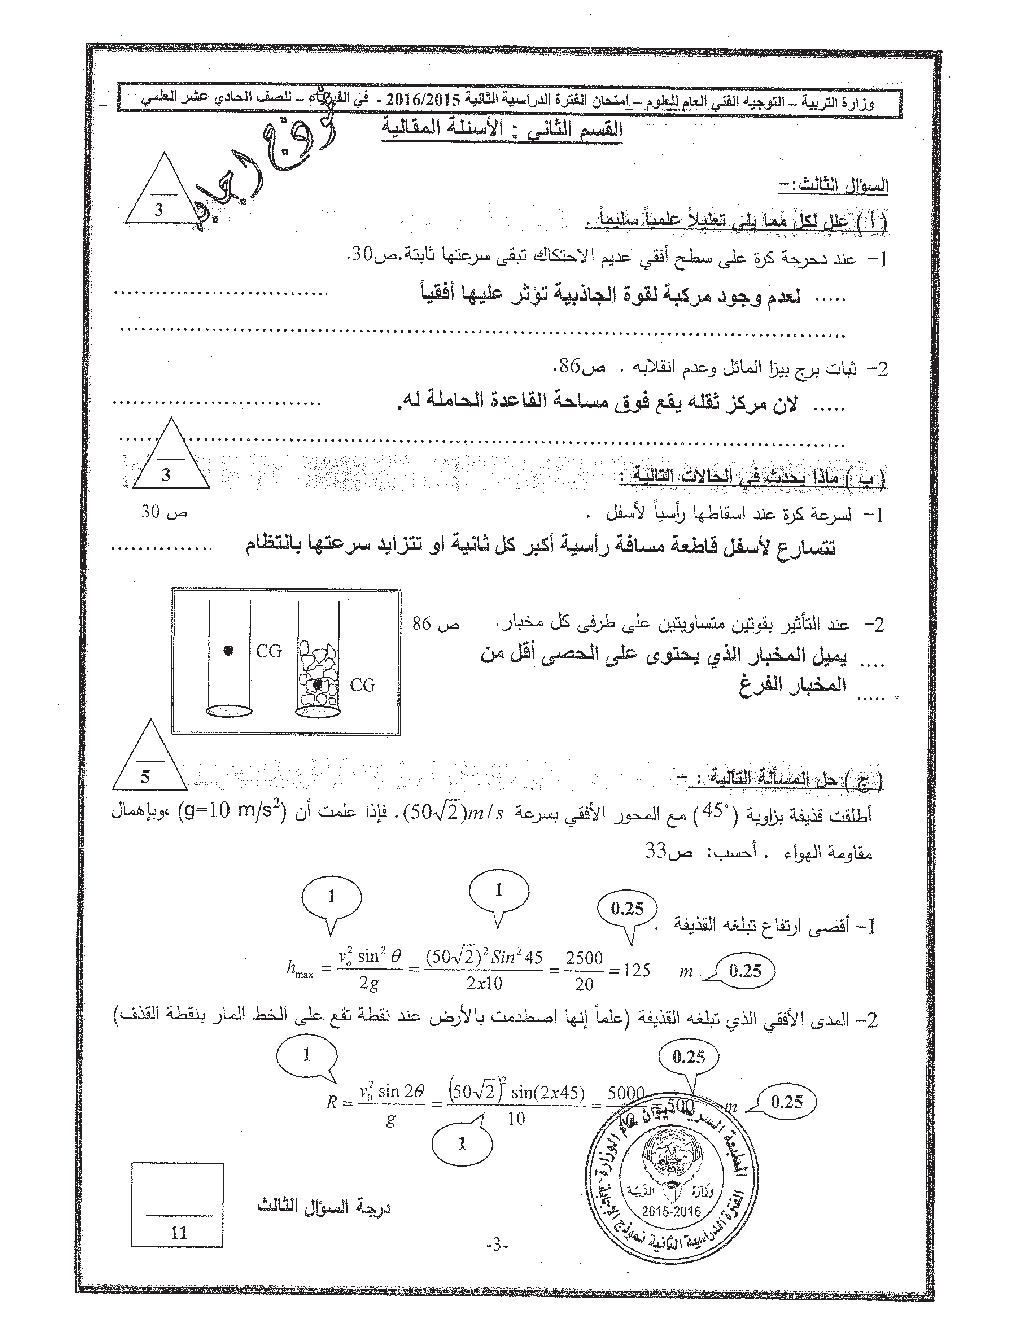 وزارة التربية – التوجيه الفني العام للعلوم – امتحان الفترة الدراسية الثانية 2016/2015 - في الفيزياء – للصف الحادي عشر العلمي
القسم الثاني : الأسئلة المقالية
3
السؤال الثالث:–
( أ ) علل لكل مما يلي تعليلاً علمياً سليماً .
1– عند دحرجة كرة على سطح أفقي عديم الاحتكاك تبقى سرعتها ثابتة.ص30.
..... لعدم وجود مركبة لقوة الجاذبية تؤثر عليها أفقياً
2– ثبات برج بيزا المائل وعدم انقلابه . ص86.
..... لان مركز ثقله يقع فوق مساحة القاعدة الحاملة له.
3
( ب ) ماذا يحدث في الحالات التالية :
1– لسرعة كرة عند اسقاطها رأسياً لأسفل . ص 30
تتسارع لأسفل قاطعة مسافة رأسية أكبر كل ثانية او تتزايد سرعتها بانتظام
2– عند التأثير بقوتين متساويتين على طرفي كل مخبار. ص 86
.... يميل المخبار الذي يحتوى على الحصى أقل من
..... المخبار الفرغ
CG
CG
5
( ج ) حل المسألة التالية : –
أطلقت قذيفة بزاوية (45°) مع المحور الأفقي بسرعة (50√2)m/s. فإذا علمت أن (g=10 m/s²) ،وبإهمال
مقاومة الهواء . أحسب: ص33
1– أقصى ارتفاع تبلغه القذيفة .
1
1
0.25
h max = v₀² sin² θ / 2g = (50√2)² Sin² 45 / 2x10 = 2500 / 20 = 125 m
0.25
2– المدى الأفقي الذي تبلغه القذيفة (علماً إنها اصطدمت بالأرض عند نقطة تقع على الخط المار بنقطة القذف)
1
0.25
R = v₀² sin 2θ / g = (50√2)² sin(2x45) / 10 = 5000 / 10 = 500 m
0.25
1
وزارة التربية
2015-2016
درجة السؤال الثالث
11
-3-